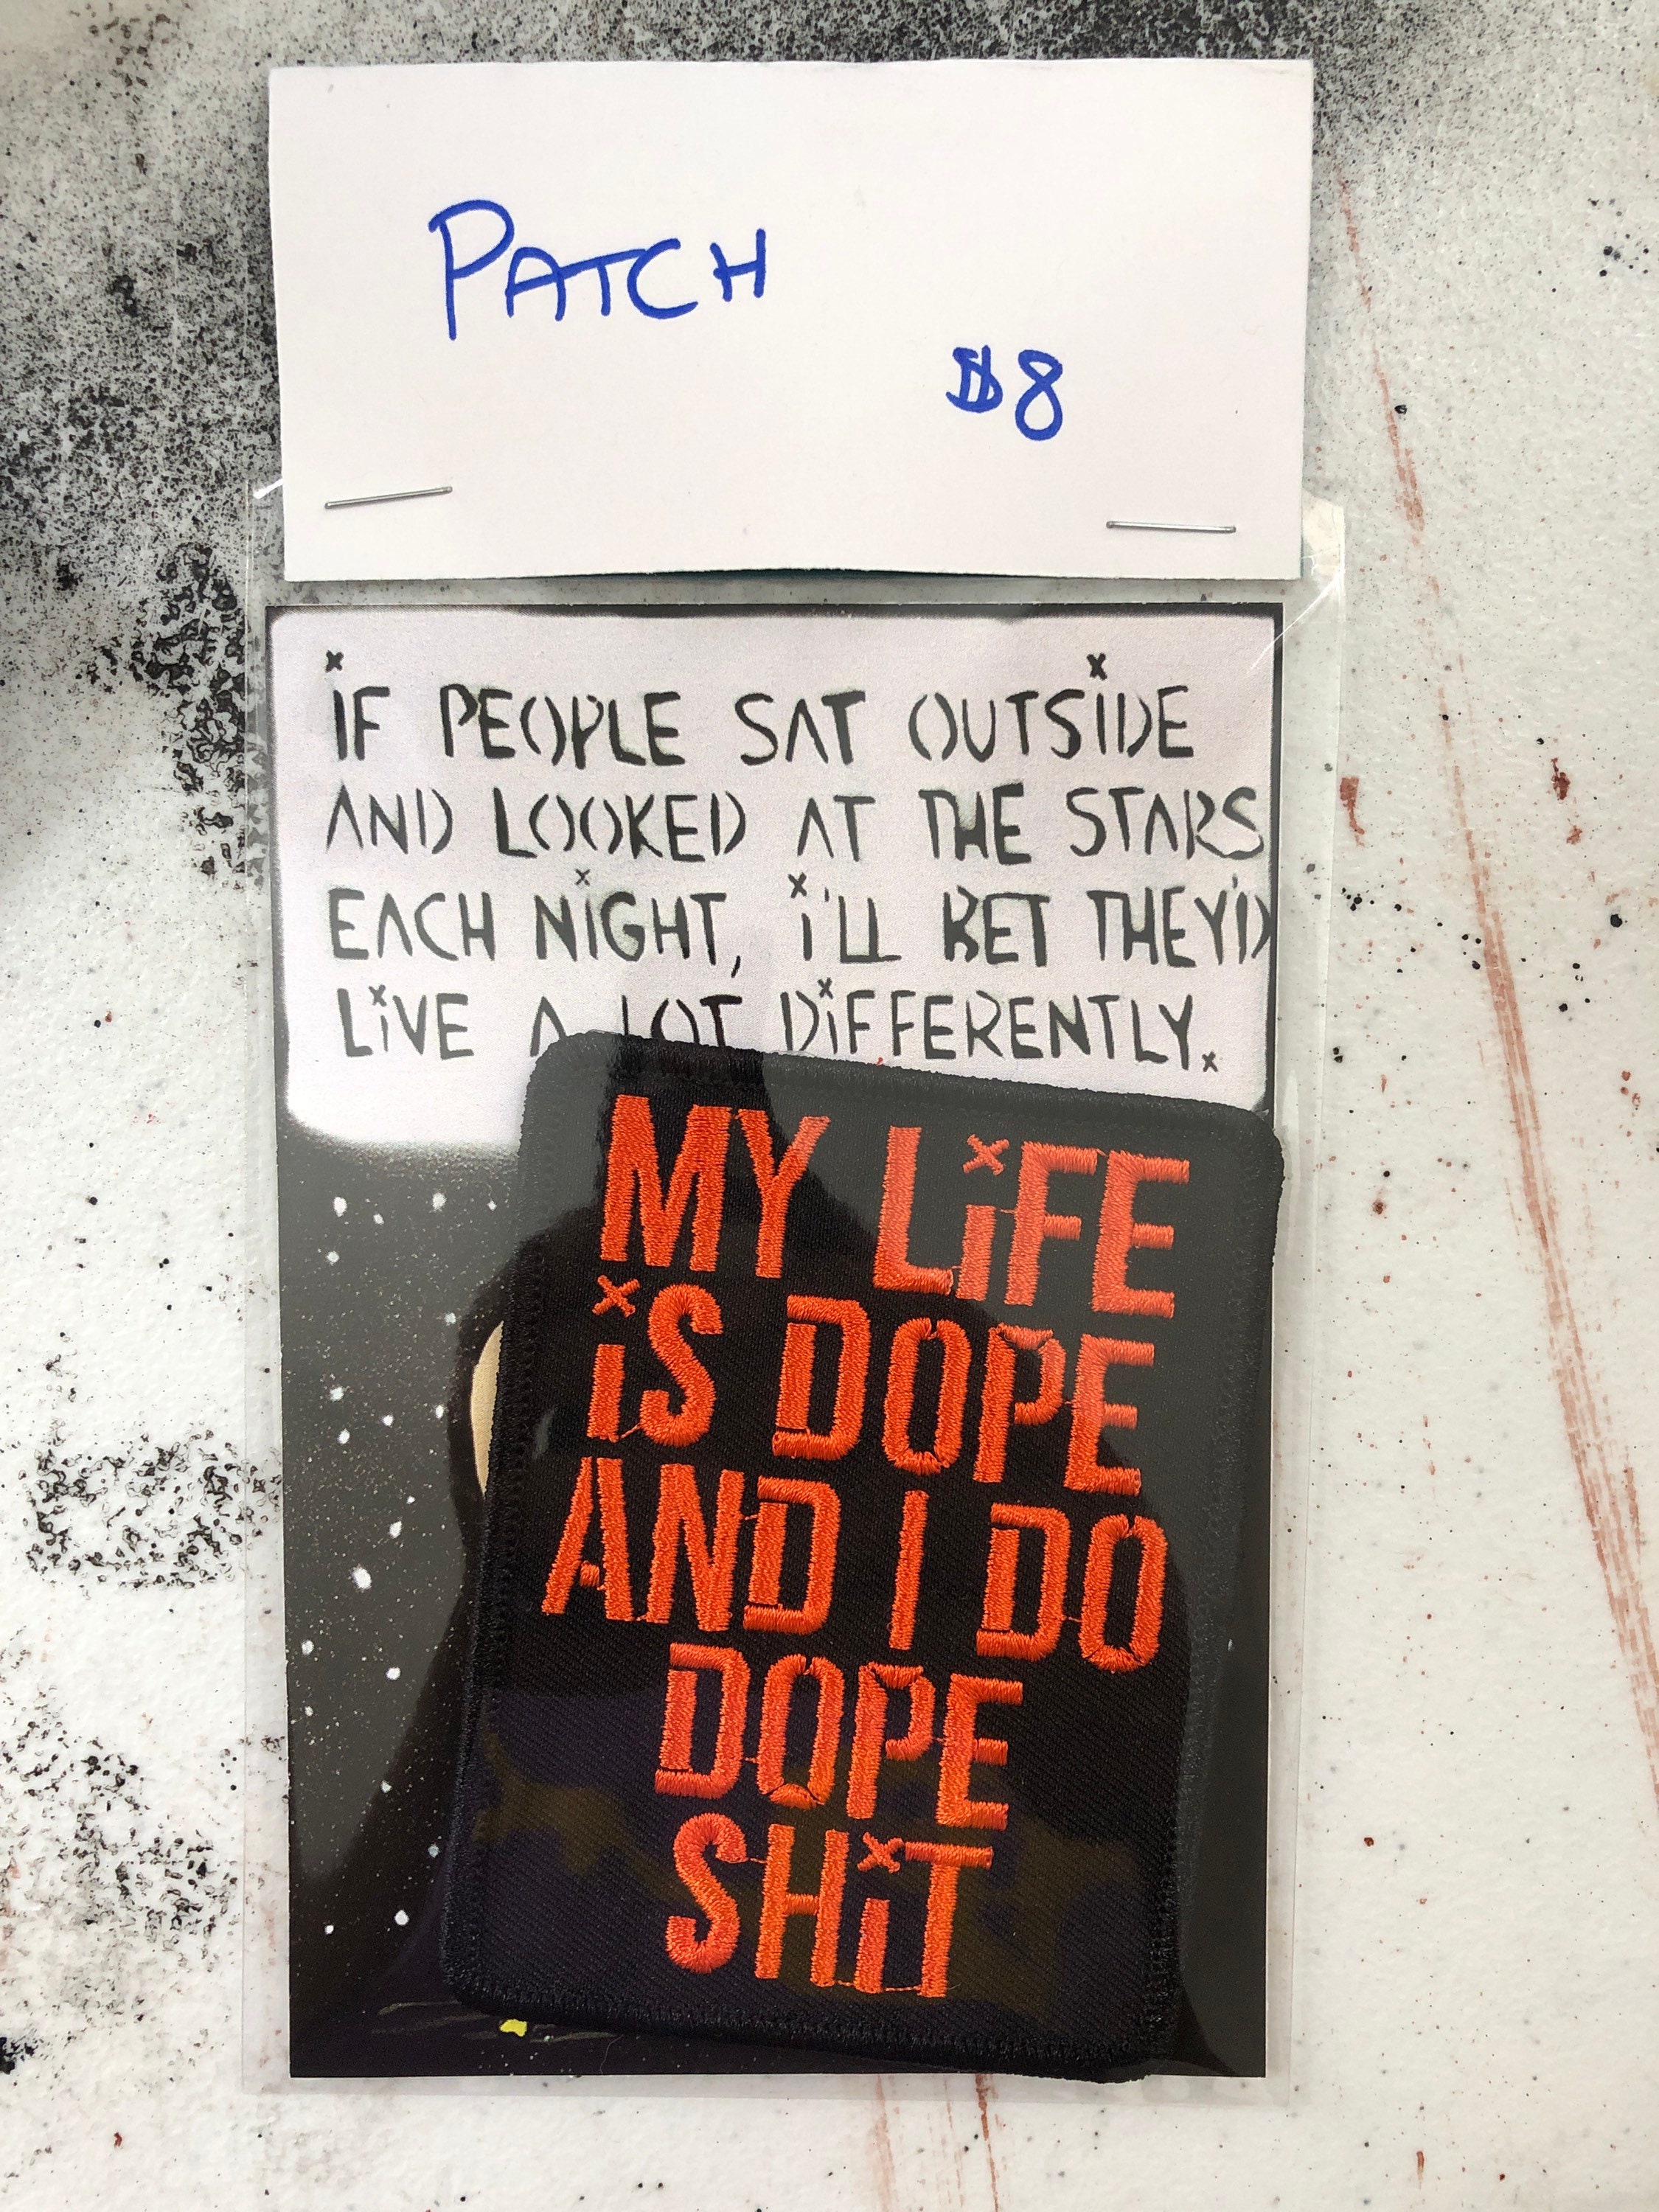 PATCH
$8
iF PEOPLE SAT OUTSiDE
AND LOOKED AT THE STARS
EACH NiGHT, i'LL BET THEY'D
LiVE A LOT DiFFERENTLY.
MY LiFE
iS DOPE
AND I DO
DOPE
SHiT